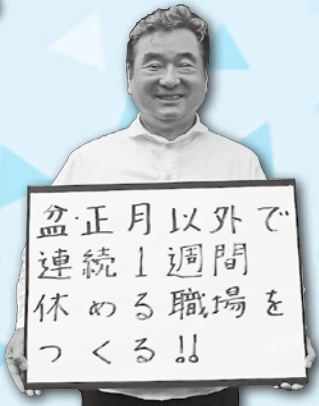 盆・正月以外で
連続1週間
休める職場を
つくる!!